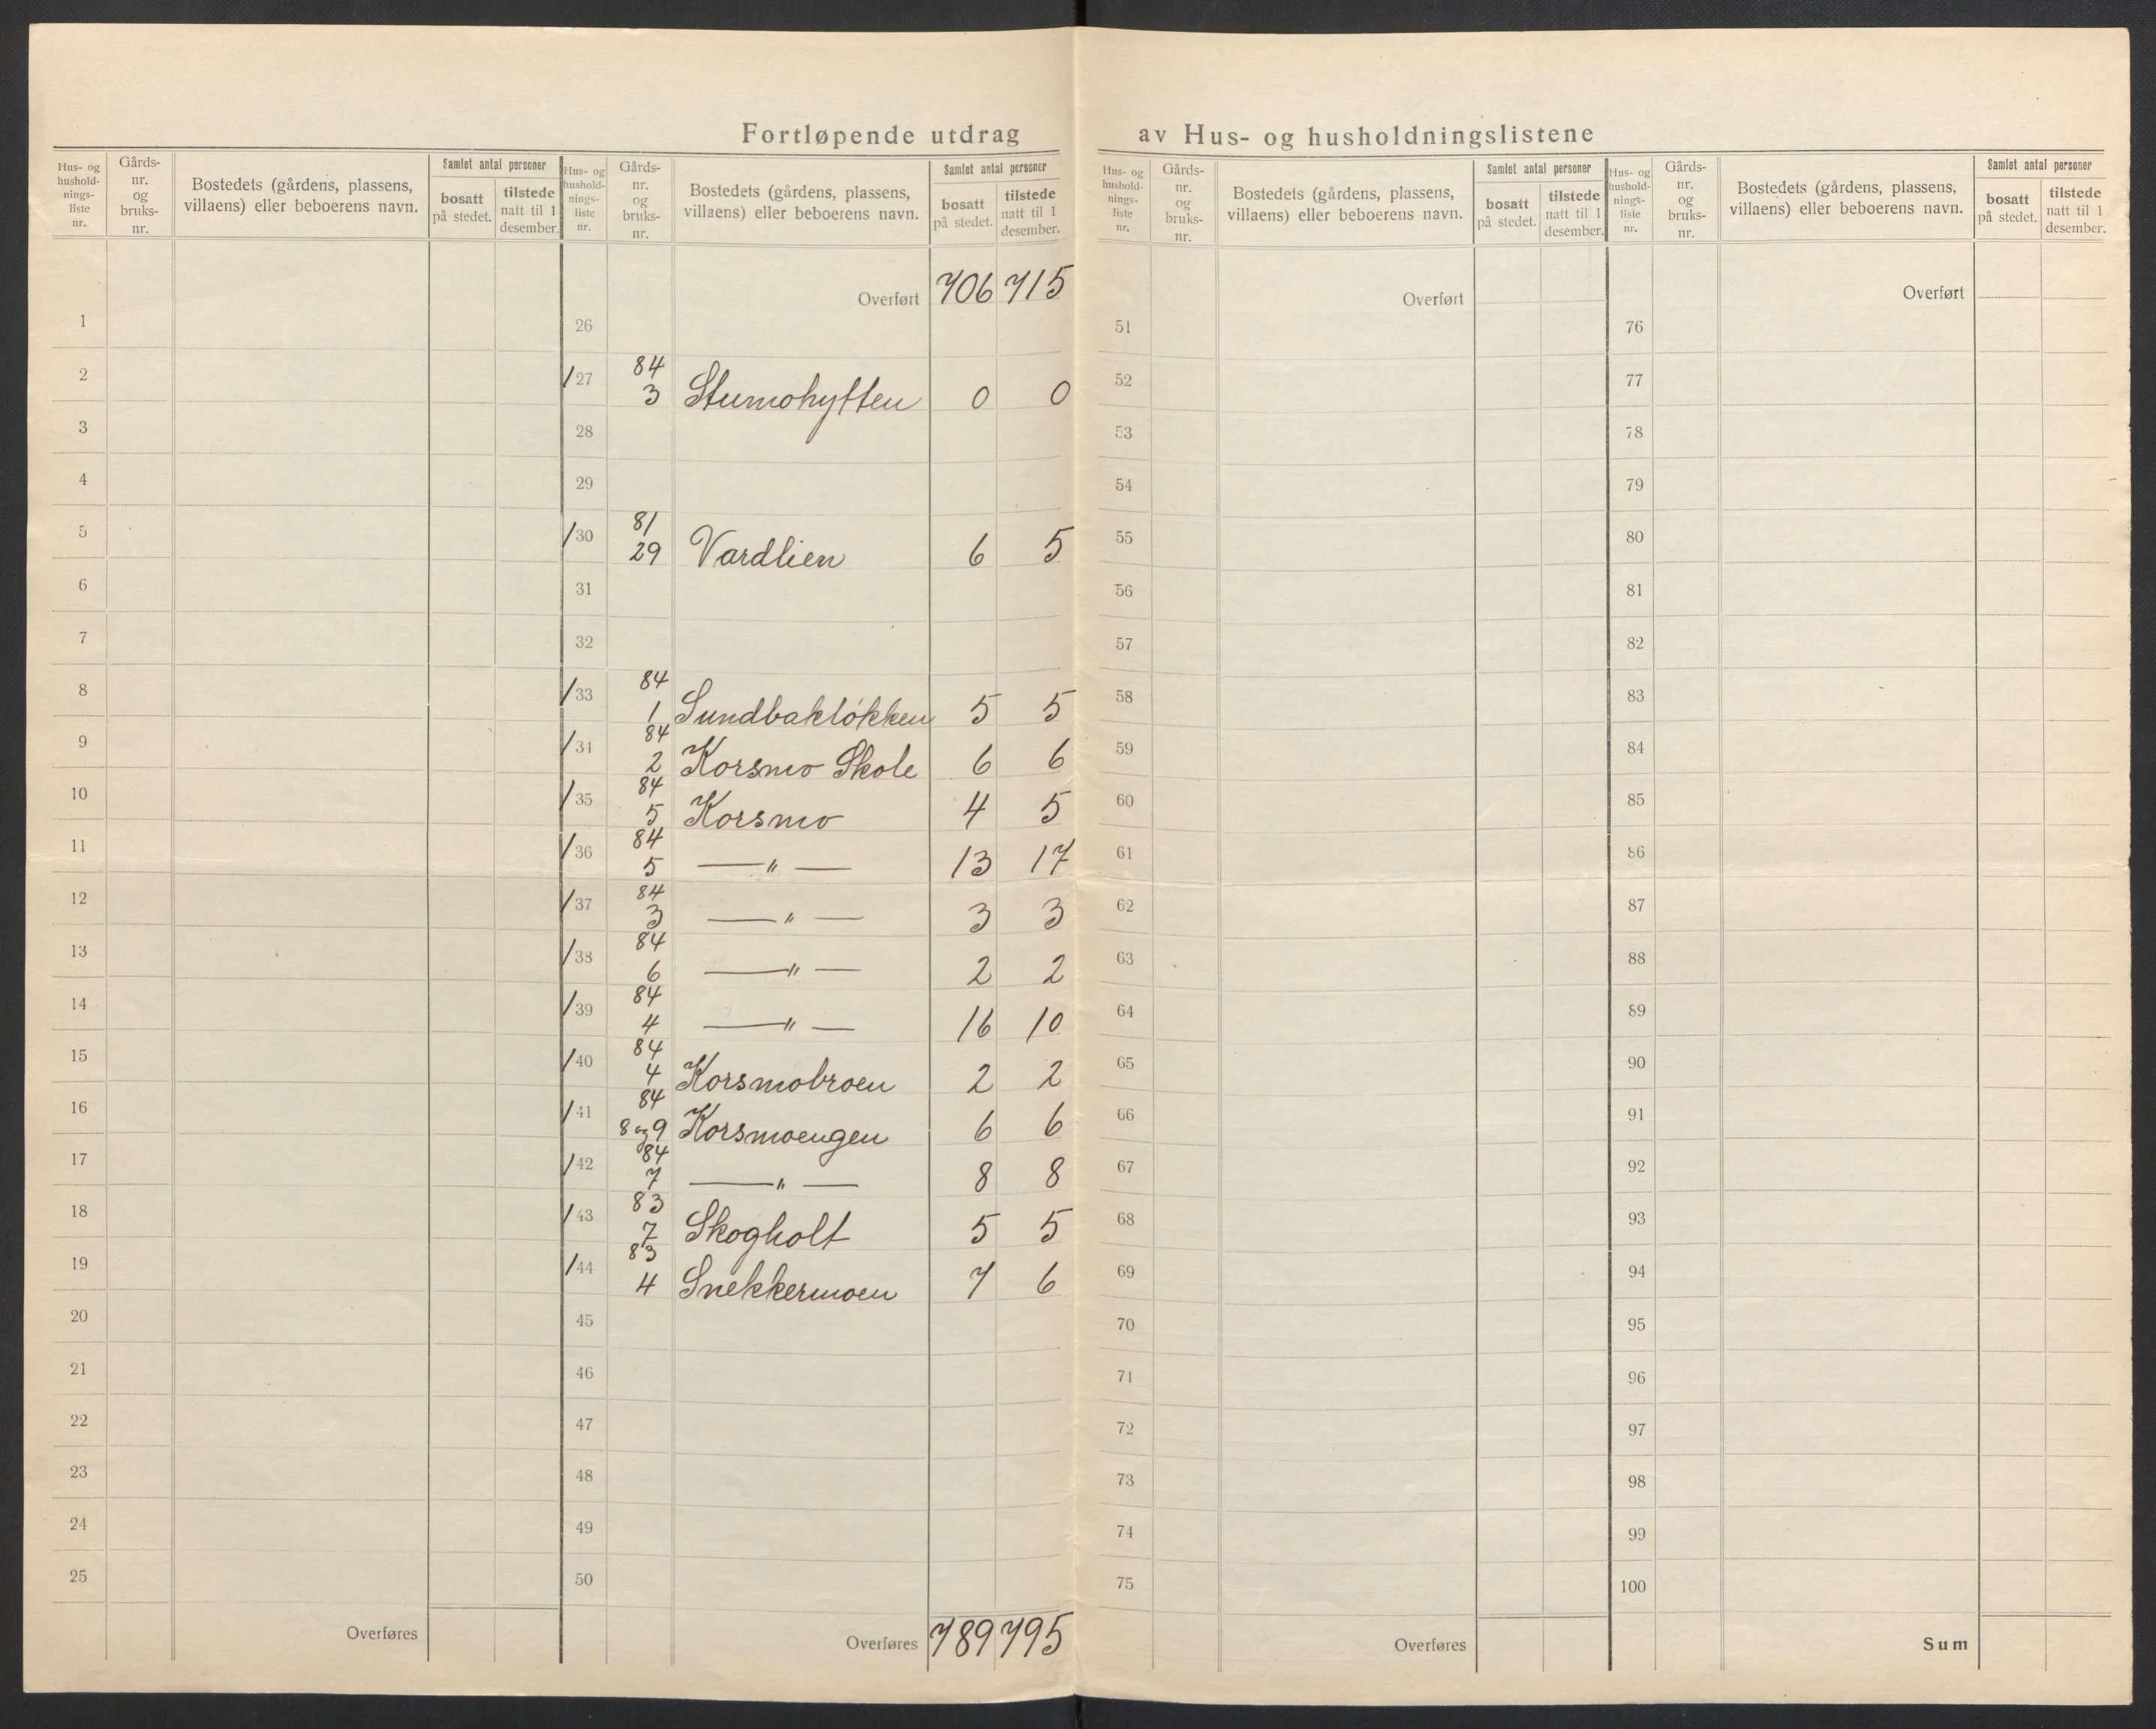 Fortløpende utdrag av Hus- og husholdningslistene
Hus- og husholdnings-liste nr. | Gårds-nr. og bruks-nr. | Bostedets (gårdens, plassens, villaens) eller beboerens navn. | Samlet antal personer | bosatt på stedet. | tilstede natt til 1 desember.
1
2
3
4
5
6
7
8
9
10
11
12
13
14
15
16
17
18
19
20
21
22
23
24
25
Overføres
Hus- og husholdnings-liste nr. | Gårds-nr. og bruks-nr. | Bostedets (gårdens, plassens, villaens) eller beboerens navn. | Samlet antal personer | bosatt på stedet. | tilstede natt til 1 desember.
Overført 706 715
26
/27 84 3 Stumohytten 0 0
28
29
/30 81 29 Vardlien 6 5
31
32
/33 84 1 Sundbakløkken 5 5
/34 84 2 Korsmo Skole 6 6
/35 84 5 Korsmo 4 5
/36 84 5 —"— 13 17
/37 84 3 —"— 3 3
/38 84 6 —"— 2 2
/39 84 4 —"— 16 10
/40 84 4 Korsmobroen 2 2
/41 84 8 og 9 Korsmoengen 6 6
/42 84 7 —"— 8 8
/43 83 7 Skogholt 5 5
/44 83 4 Snekkermoen 7 6
45
46
47
48
49
50
Overføres 789 795
Hus- og husholdnings-liste nr. | Gårds-nr. og bruks-nr. | Bostedets (gårdens, plassens, villaens) eller beboerens navn. | Samlet antal personer | bosatt på stedet. | tilstede natt til 1 desember.
Overført
51
52
53
54
55
56
57
58
59
60
61
62
63
64
65
66
67
68
69
70
71
72
73
74
75
Overføres
Hus- og husholdnings-liste nr. | Gårds-nr. og bruks-nr. | Bostedets (gårdens, plassens, villaens) eller beboerens navn. | Samlet antal personer | bosatt på stedet. | tilstede natt til 1 desember.
Overført
76
77
78
79
80
81
82
83
84
85
86
87
88
89
90
91
92
93
94
95
96
97
98
99
100
Sum